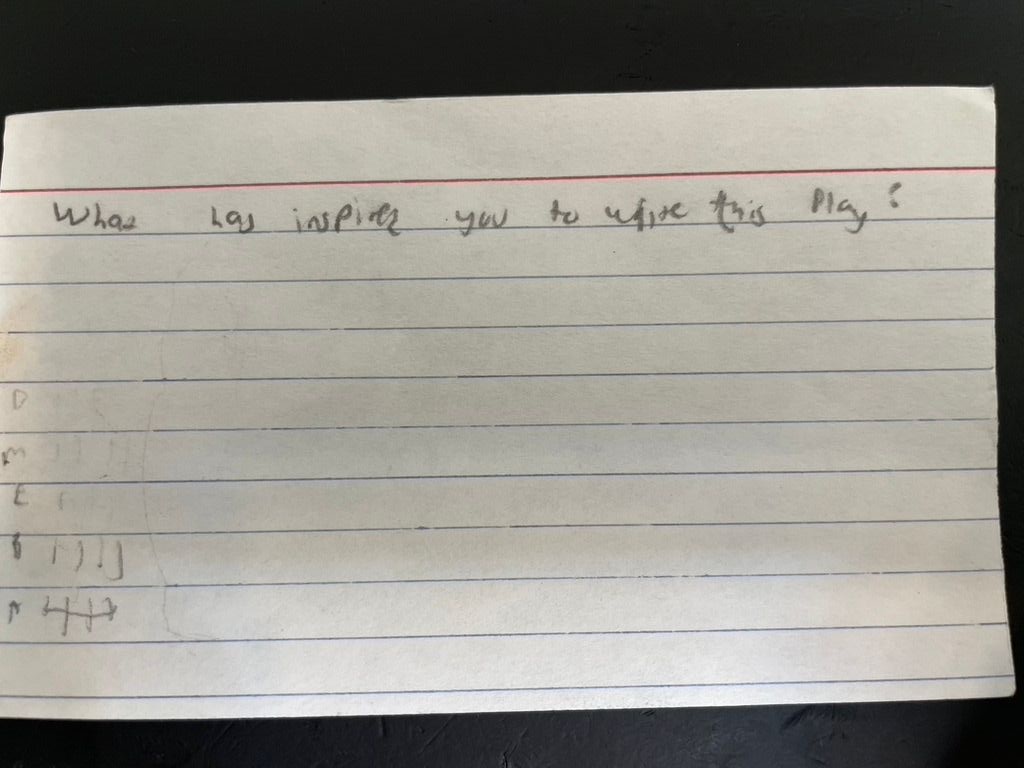 What has inspired you to write this play?
D
M
E